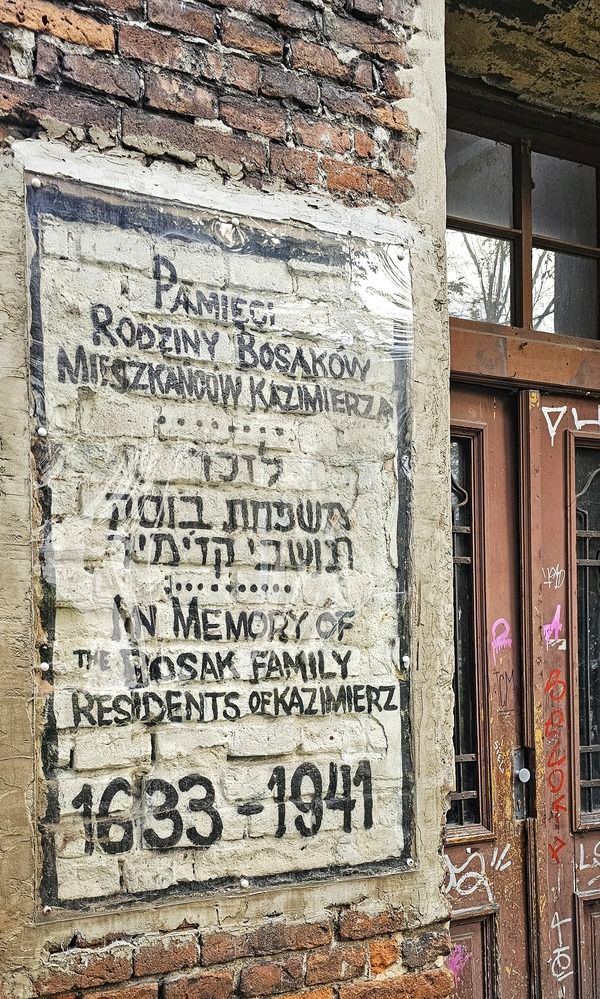 PAMIĘCI
RODZINY BOSAKÓW
MIESZKAŃCÓW KAZIMIERZA
לזכר
משפחת בוסק
תושבי קז'מיר
IN MEMORY OF
THE BOSAK FAMILY
RESIDENTS OF KAZIMIERZ
1633-1941